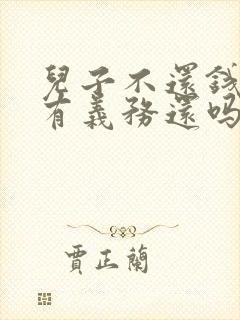 兒子不還錢
有義務還吗
賈正蘭